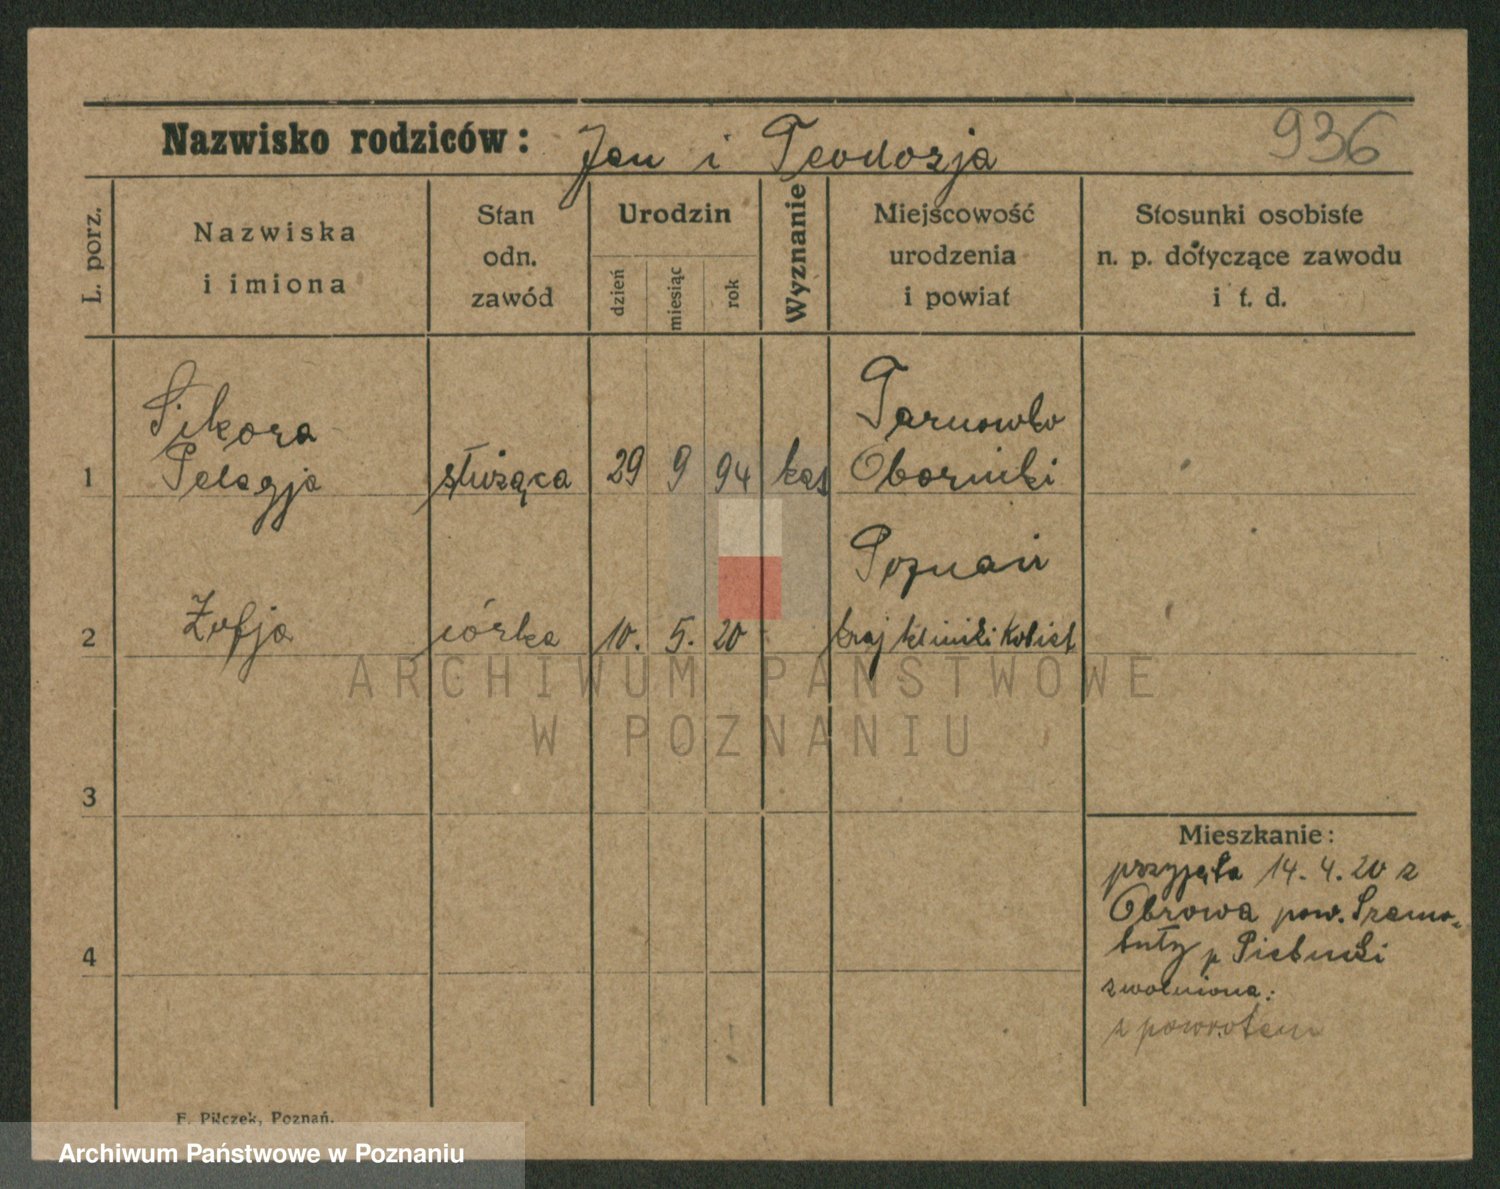 Nazwisko rodziców: Jan i Teodozja
936
L. porz.
Nazwiska
i imiona
Stan
odn.
zawód
Urodzin
dzień
miesiąc
rok
Wyznanie
Miejscowość
urodzenia
i powiat
Stosunki osobiste
n. p. dotyczące zawodu
i t. d.
Sikora
Tarnowko
1 Pelagja służąca 29 9 94 kat Oborniki
Poznań
2 Zofja córka 10. 5. 20 kraj kliniki Kobiet
3
4
Mieszkanie:
przyjęta 14. 4. 20 z
Obrowa pow. Szamo-
tuły p
zwolniona:
z powrotem
F. Pilczek, Poznań.
ARCHIWUM PAŃSTWOWE
W POZNANIU
Archiwum Państwowe w Poznaniu